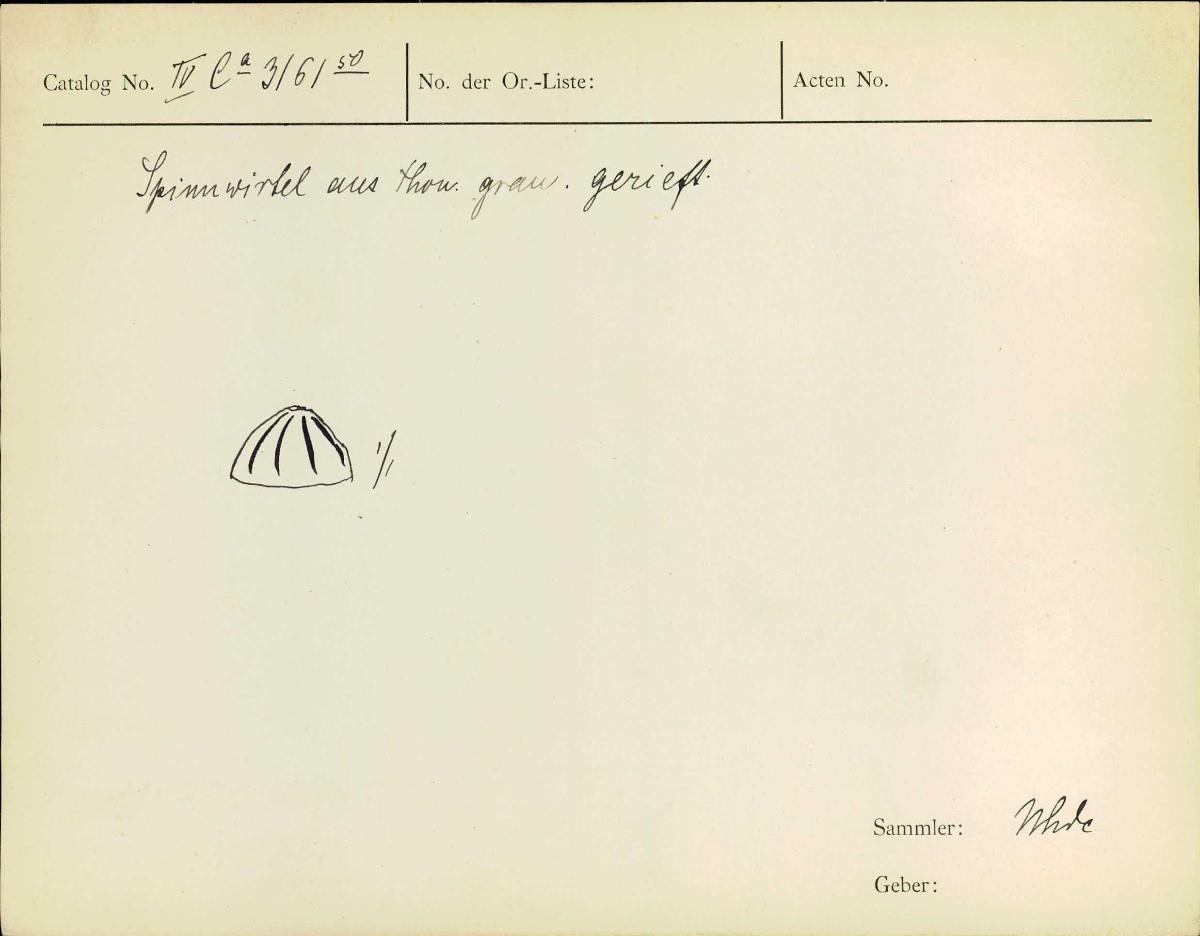 Catalog No. IV Ca 3161 50 No. der Or.-Liste: Acten No.
Spinnwirtel aus Thon. grau. gerieft.
1/1
Sammler: Uhde
Geber: